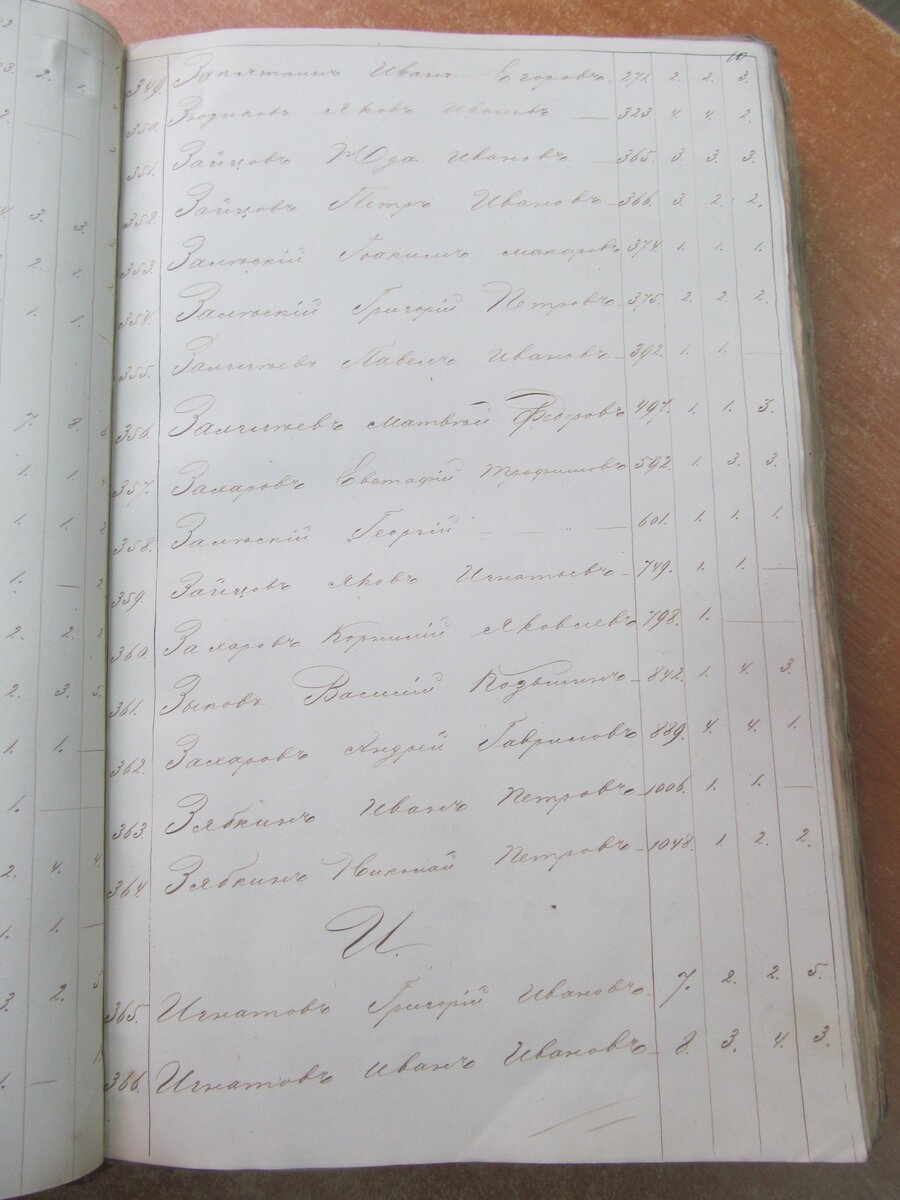 10
349. Запяткинъ Иванъ Егоровъ 271. 2. 2. 3.
350. Зюдиковъ Яковъ Ивановъ — 323. 4. 4. 2.
351. Зайцовъ Іуда Ивановъ — 365. 3. 3. 3.
352. Зайцовъ Петръ Ивановъ — 366. 3. 2. 2.
353. Залѣскій Іоакимъ Макаровъ 374. 1. 1. 1.
354. Залѣскій Григорій Петровъ 375. 2. 2. 2.
355. Павелъ Ивановъ — 392. 1. 1. —
356. Матвѣй Федоровъ 497. 1. 1. 3.
357. Захаровъ Евстафій Трофимовъ 592. 1. 3. 3.
358. Залѣскій Георгій — — 601. 1. 1. 1.
359. Зайцовъ Яковъ Игнатьевъ — 749. 1. 1. —
360. Захаровъ Корнилій Яковлевъ 798. 1. — —
361. Зыковъ Василій Козьминъ — 842. 1. 4. 3.
362. Захаровъ Андрей Гавриловъ 889. 4. 4. 1.
363. Зябкинъ Иванъ Петровъ — 1006. 1. 1. —
364. Зябкинъ Николай Петровъ — 1048. 1. 2. 2.
И.
365. Игнатовъ Григорій Ивановъ — 7. 2. 2. 5.
366. Игнатовъ Иванъ Ивановъ — 8. 3. 4. 3.